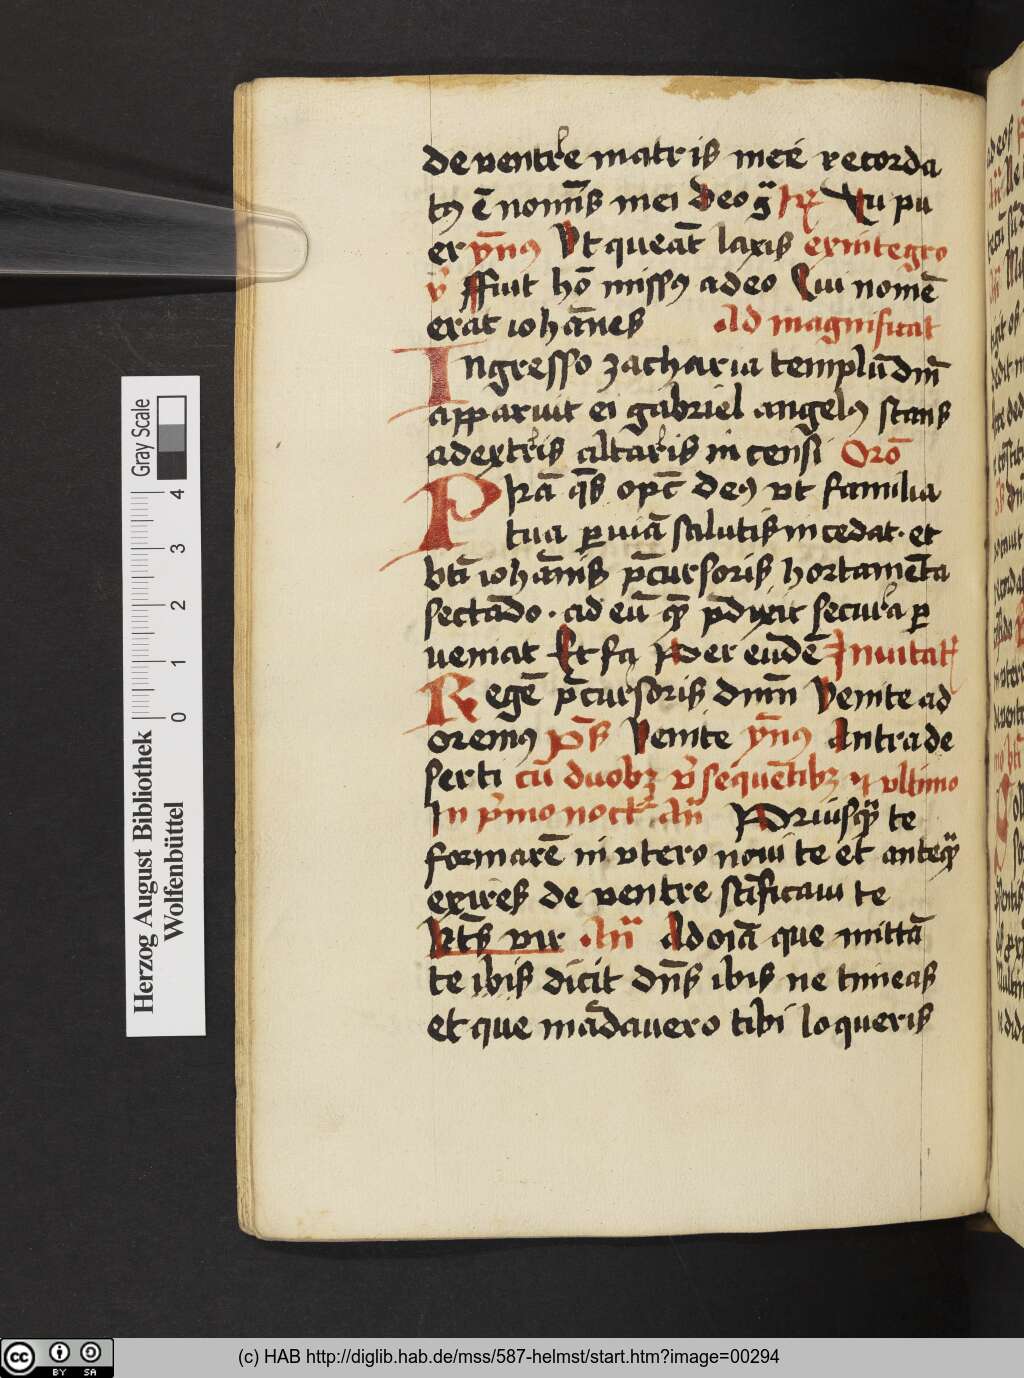 de ventre matris mee recorda
tꝰ ē nomīs mei deo gͣ Rx Tu pu
er ymnꝰ Ut queāt laxis ex integro
v̄ ffuit hō missꝰ a deo Cui nomē
erat iohānes Ad magnificat
Ingresso zacharia templū dn̄i
apparuit ei gabriel angelꝰ stans
a dextris altaris incensi Orō
Pr̄a q̄s opc̄ deꝰ vt familia
tua ꝑ uiā salutis incedat · et
bt̄i iohānis p̄cursoris hortamēta
sectādo · ad eū q̄ p̄dixit secura ꝑ
ueniat Et fa Per eūdē Inuitat
Regē p̄cursoris dnm̄ Venite ad
oremꝰ p̄s Venite ymnꝰ Antra de
serti cū duobꝫ v̄ sequētibꝫ et vltimo
In pͥmo noctͬ an̄ Priusqͣ te
formarē in vtero noui te et anteqͣ
exires de ventre sc̄ificaui te
Bt̄s vir An̄ Ad oīa que mittā
te ibis dicit dn̄s ibis ne timeas
et que mādauero tibi loqueris
Gray Scale
4
3
2
1
0
Herzog August Bibliothek
Wolfenbüttel
(c) HAB http://diglib.hab.de/mss/587-helmst/start.htm?image=00294
cc BY SA